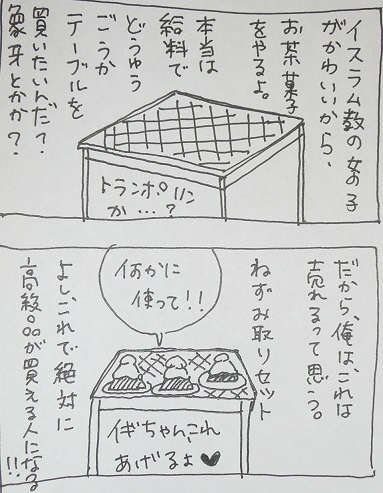 イスラム教の女の子
がかわいいから、
お茶菓子
をやるよ。
本当は
給料で
どうゆう
ごうか
テーブルを
買いたいんだ？
象牙とかか？
トランポリン
か…？
だから、俺は、これは
売れるって思う。
ねずみ取りセット
何かに
使って！！
よし、これで絶対に
高級。。。が買える人になる
！！
イギちゃん、これ
あげるょ♥